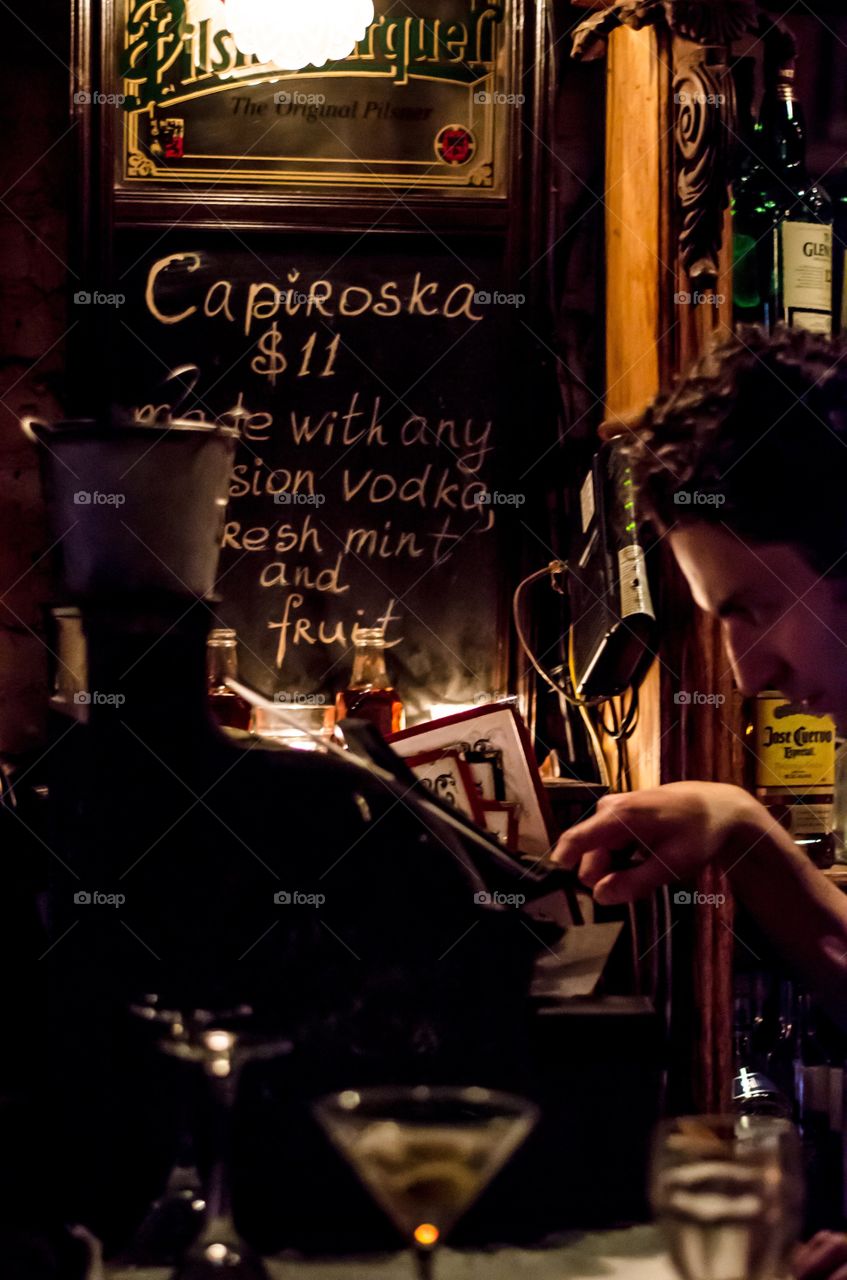 Pilsner Urquell
The Original Pilsner
Capiroska
$11
made with any
sion vodka,
resh mint
and
fruit
GLEN
12
Jose Cuervo
Especial
foap